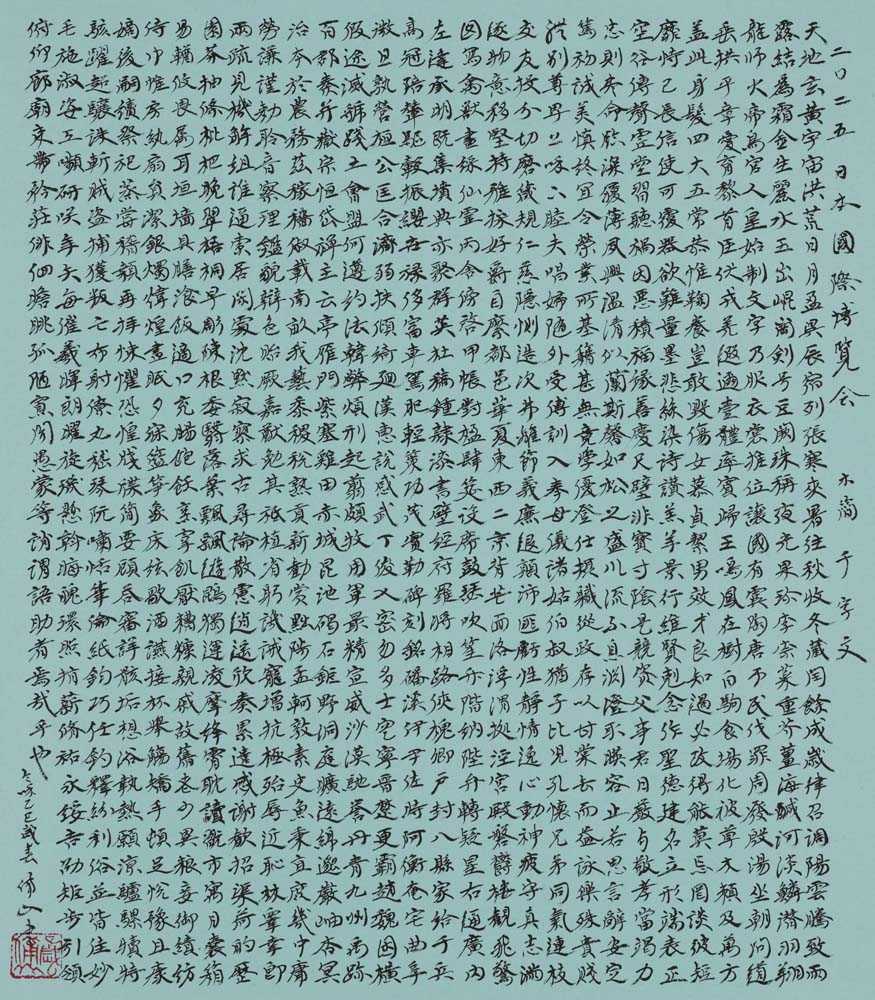 二〇二五日本國際博覽会 木簡 千字文
天地玄黃宇宙洪荒日月盈昃辰宿列張寒來暑往秋收冬藏閏餘成歲律召調陽雲騰致雨
露結為霜金生麗水玉出崐崗劍号巨闕珠稱夜光果珍李柰菜重芥薑海鹹河淡鱗潛羽翔
龍師火帝鳥官人皇始制文字乃服衣裳推位讓國有虞陶唐弔民伐罪周發殷湯坐朝問道
垂拱平章愛育黎首臣伏戎羌遐邇壹體率賓歸王鳴鳳在樹白駒食場化被草木賴及萬方
盖此身髮四大五常恭惟鞠養豈敢毀傷女慕貞絜男效才良知過必改得能莫忘罔談彼短
靡恃己長信使可覆器欲難量墨悲絲染詩讚羔羊景行維賢剋念作聖德建名立形端表正
空谷傳聲虛堂習聽禍因惡積福緣善慶尺璧非寶寸陰是競資父事君曰嚴與敬孝當竭力
忠則盡命臨深履薄夙興溫清似蘭斯馨如松之盛川流不息淵澄取暎容止若思言辭安定
篤初誠美慎終宜令榮業所基籍甚無竟學優登仕攝職從政存以甘棠去而益詠樂殊貴賤
禮別尊卑上和下睦夫唱婦隨外受傅訓入奉母儀諸姑伯叔猶子比兒孔懷兄弟同氣連枝
交友投分切磨箴規仁慈隱惻造次弗離節義廉退顛沛匪虧性靜情逸心動神疲守真志滿
逐物意移堅持雅操好爵自縻都邑華夏東西二京背芒面洛浮渭據涇宮殿盤鬱樓觀飛驚
図寫禽獸畫綵仙靈丙舍傍啓甲帳對楹肆筵設席鼓瑟吹笙升階納陛弁轉疑星右通廣內
左達承明既集墳典亦聚群英杜稿鍾隸漆書壁經府羅將相路俠槐卿戶封八縣家給千兵
高冠陪輦驅轂振纓世祿侈富車駕肥輕策功茂實勒碑刻銘磻溪伊尹佐時阿衡奄宅曲阜
微旦孰營桓公匡合濟弱扶傾綺迴漢惠說感武丁俊乂密勿多士寔寧晉楚更霸趙魏困橫
假途滅虢踐土會盟何遵約法韓弊煩刑起翦頗牧用軍最精宣威沙漠馳譽丹青九州禹跡
百郡秦并嶽宗恒岱禪主云亭雁門紫塞雞田赤城昆池碣石鉅野洞庭曠遠綿邈巖岫杳冥
治本於農務茲稼穡俶載南畝我藝黍稷稅熟貢新勸賞黜陟孟軻敦素史魚秉直庶幾中庸
勞謙謹勅聆音察理鑑貌辯色貽厥嘉猷勉其祗植省躬譏誡寵增抗極殆辱近恥林睾幸即
兩疏見機解組誰逼索居閑處沈默寂寥求古尋論散慮逍遙欣奏累遣慼謝歡招渠荷的歷
園莽抽條枇杷晚翠梧桐早彫陳根委翳落葉飄颻遊鵾獨運凌摩絳霄耽讀翫市寓目囊箱
易輶攸畏属耳垣墻具膳飡飯適口充腸飽飫烹宰飢厭糟糠親戚故舊老少異粮妾御績紡
侍巾帷房紈扇員潔銀燭煒煌晝眠夕寐籃笋象床絃歌酒讌接杯舉觴矯手頓足悅豫且康
嫡後嗣續祭祀蒸嘗稽顙再拜悚懼恐惶牋牒簡要顧答審詳骸垢想浴執熱願涼驢騾犢特
駭躍超驤誅斬賊盜捕獲叛亡布射僚丸嵇琴阮嘯恬筆倫紙鈞巧任釣釋紛利俗並皆佳妙
毛施淑姿工嚬研咲年矢每催羲暉朗曜旋璣懸斡晦魄環照指薪脩祐永綏吉劭矩步引領
俯仰廊廟束帶矜莊俳佪瞻眺孤陋寡聞愚蒙等誚謂語助者焉哉乎也
乙巳歲春